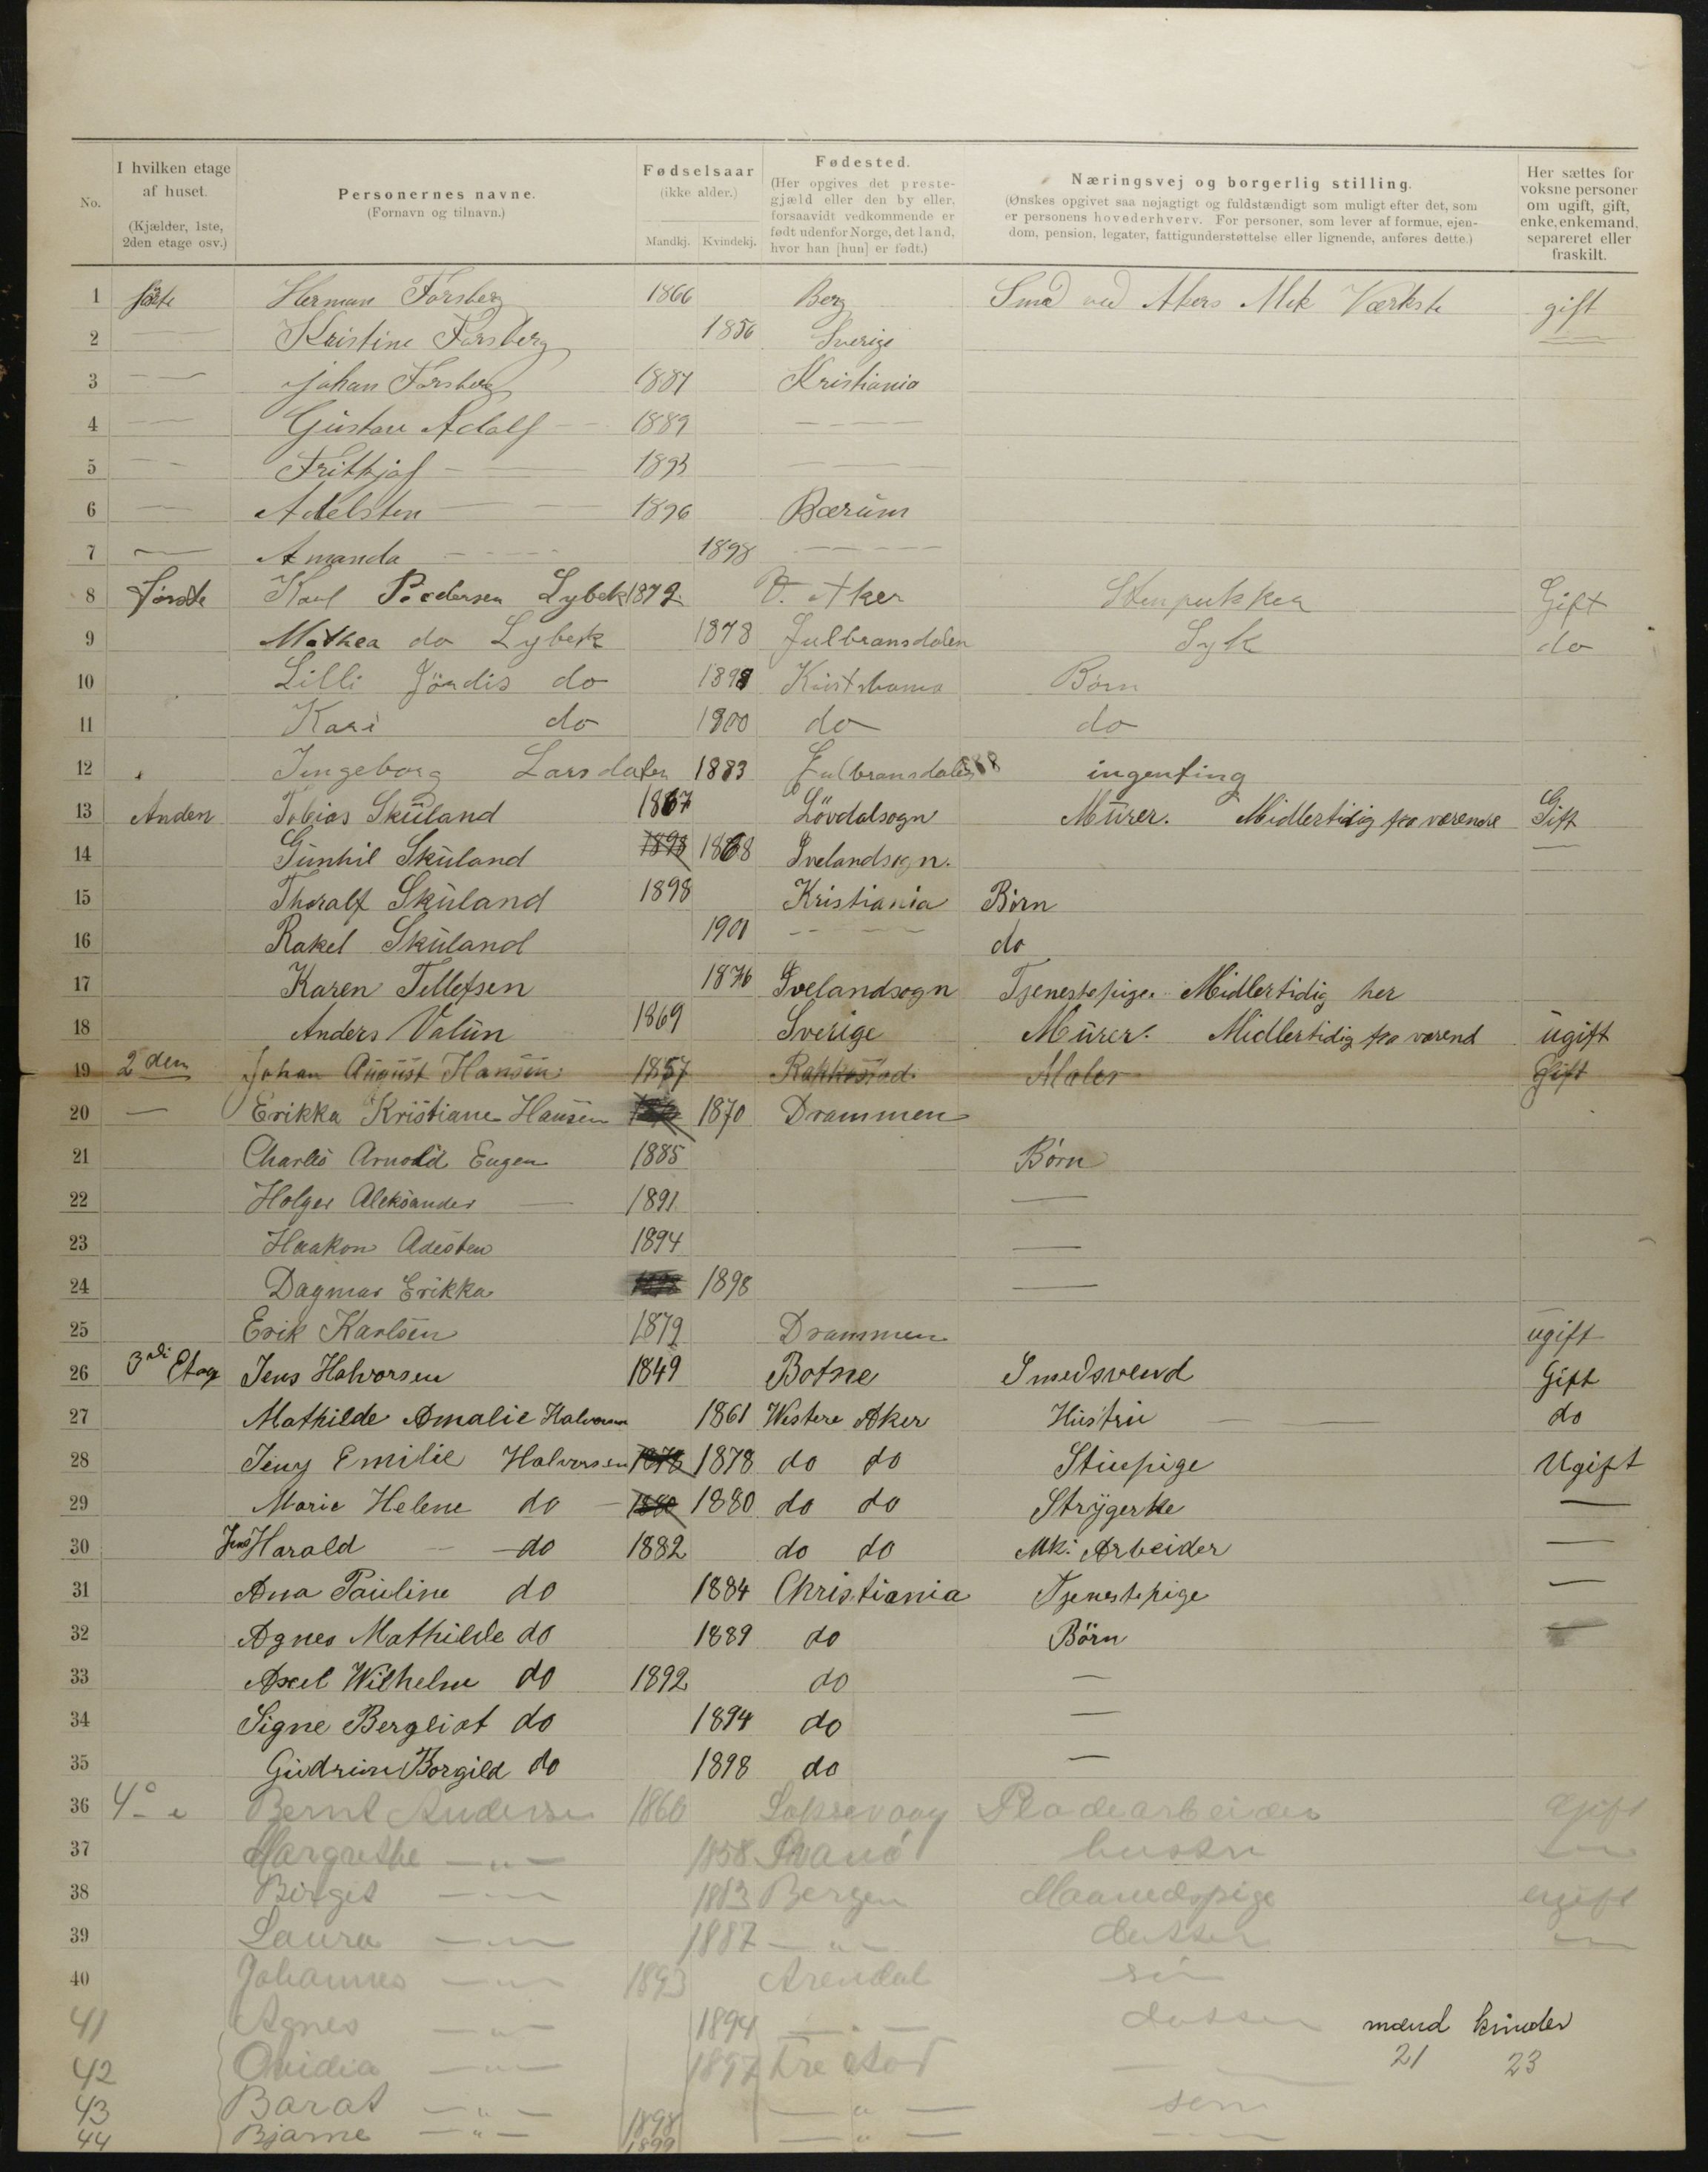 No.
I hvilken etage
af huset.
(Kjælder, 1ste,
2den etage osv.)
Personernes navne.
(Fornavn og tilnavn.)
Fødselsaar
(ikke alder.)
Mandkj. Kvindekj.
Fødested.
(Her opgives det preste-
gjæld eller den by eller,
forsaavidt vedkommende er
født udenfor Norge, det land,
hvor han [hun] er født.)
Næringsvej og borgerlig stilling.
(Ønskes opgivet saa nøjagtigt og fuldstændigt som muligt efter det, som
er personens hovederhverv. For personer, som lever af formue, ejen-
dom, pension, legater, fattigunderstøttelse eller lignende, anføres dette.)
Her sættes for
voksne personer
om ugift, gift,
enke, enkemand,
separeret eller
fraskilt.
1 Herman Forsberg 1866 Berg Smed ved Akers Mek Værkste gift
2 — Kristine Forsberg 1856 Sverige —
3 — Johan Forsberg 1887 Kristiania
4 — Gustav Adolf — 1889 —
5 — Frithjof — 1893 —
6 — Adelsten — 1896 Bærum
7 — Amanda — 1898 —
8 første Karl Pedersen Lybek 1872 V. Aker Stenpukker Gift
9 Mathea do Lybeck 1878 Gulbransdalen Syk do
10 Lilli Jördis do 1898 Kristiania Børn
11 Kari do 1900 do do
12 Ingeborg Larsdater 1883 Gulbransdalen ingenting
13 Anden Tobias Skuland 1867 Lövdalsogn Murer. Midlertidig fra værende Gift
14 Gunhil Skuland 1898 1868 Ivelandsogn. —
15 Thoralf Skuland 1898 Kristiania Börn
16 Rakel Skuland 1901 — do
17 Karen Tellefsen 1876 Ivelandsogn Tjenestepige. Midlertidig her
18 Anders Valun 1869 Sverige Murer. Midlertidig fra værend ugift
19 2den Johan August Hansen 1857 Rakkestad Maler Gift
20 — Erikka Kristiane Hansen 1870 Drammen
21 Charles Arnold Eugen 1885 Børn
22 Holger Aleksander — 1891 —
23 Haakon Adesten 1894 —
24 Dagmar Erikka 1898 —
25 Erik Karlsen 1879 Drammen ugift
26 3die Etag Jens Halvorsen 1849 Botne Smedsvend Gift
27 Mathilde Amalie Halvorsen 1861 Westere Aker Hustru — do
28 Jeny Emilie Halvorsen 1878 1878 do do Stuepige Ugift
29 Marie Helene do — 1880 1880 do do Strygerske —
30 Jens Harald — do 1882 do do Mk. Arbeider —
31 Ana Pauline do 1884 Christiania Tjenestepige —
32 Agnes Mathilde do 1889 do Börn —
33 Axel Wilhelm do 1892 do —
34 Signe Bergliot do 1894 do —
35 Gudrun Borgild do 1898 do —
36 4de Bernt Andersen 1860 Pladearbeider Gift
37 Margrethe — „ — 1858 hustru —
38 Birgit — „ — 1883 Bergen Maanedspige ugift
39 Laura — „ — 1887 — „ — datter —
40 Johannes — „ — 1893 Arendal sön
41 Agnes — „ — 1894 — „ — datter mænd kvinder
42 Ovidia — „ — 1897 — 21 23
43 — „ — 1898 — „ — sön
44 Bjarne — „ — 1899 — „ — —